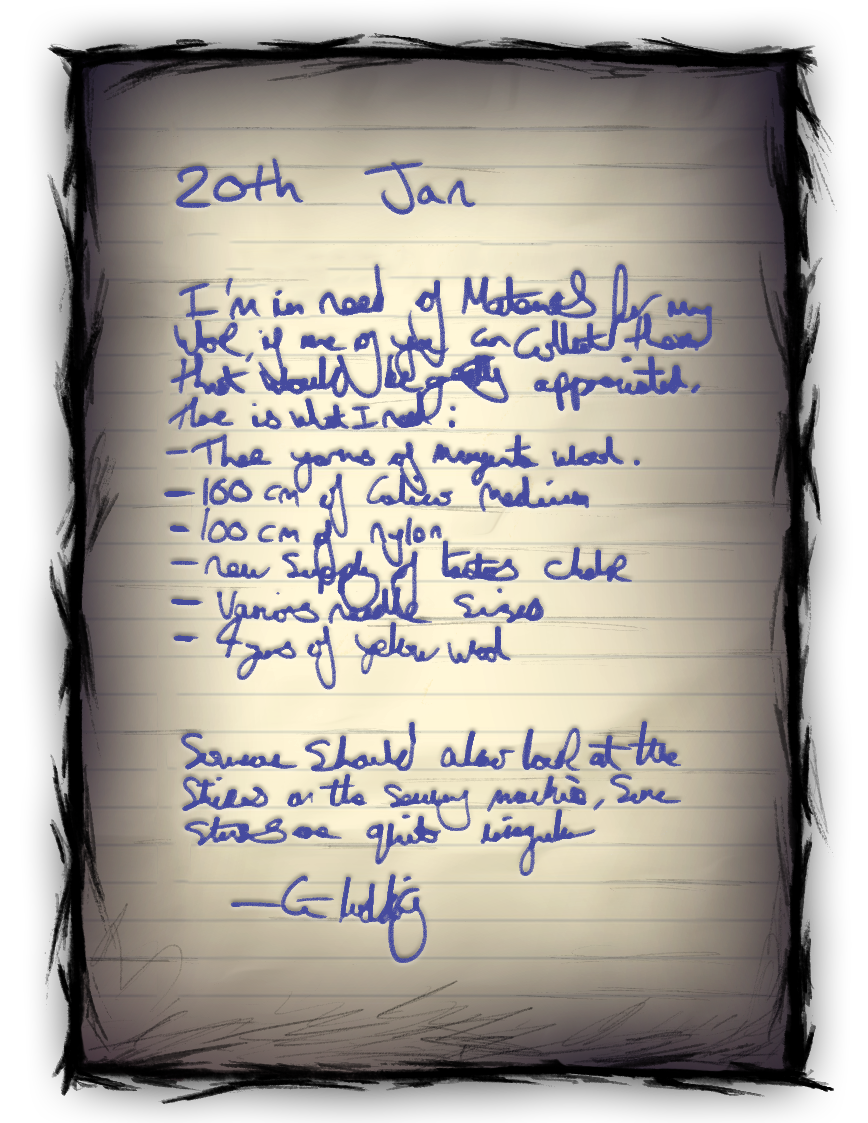 20th Jan
I'm in need of Materials for my
work, if one of you can collect them
that would be greatly appreciated.
Here is what I need:
- Three yarns of magenta wool.
- 100 cm of Calico medium
- 100 cm of nylon
- new supply of chalk
- Various needle sizes
- 4 yarns of yellow wool
Someone should also look at the
on the sewing machine, Some
are quite irregular